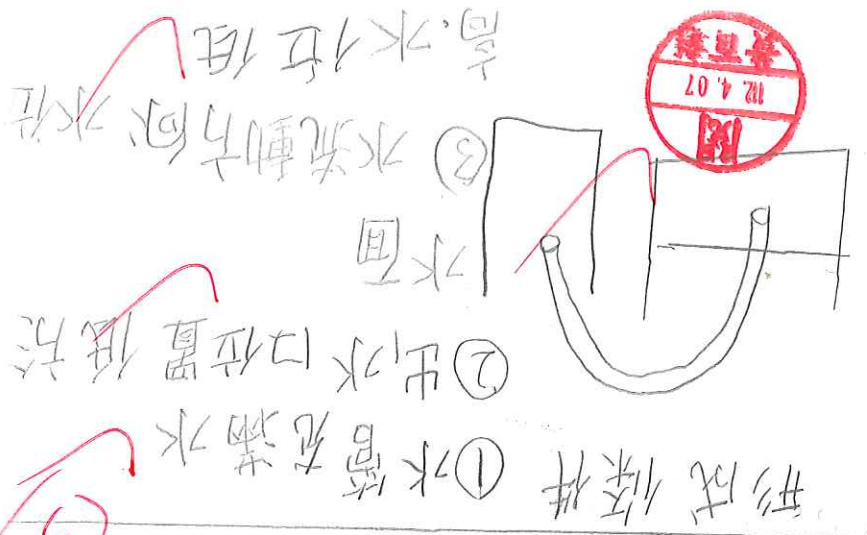 形成條件 ①水管充滿水
②出水口位置低於
水面
③水流動方向水位
高、水位低
閱
112.4.07